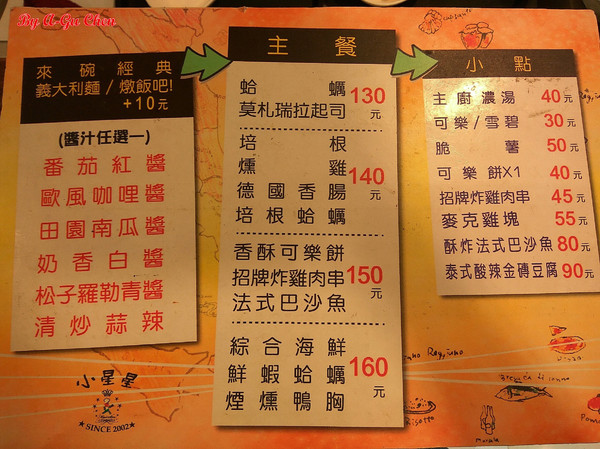 By A-Gu Chen
來碗經典
義大利麵/燉飯吧!
+10元
(醬汁任選一)
番茄紅醬
歐風咖哩醬
田園南瓜醬
奶香白醬
松子羅勒青醬
清炒蒜辣
小星星
★SINCE 2002★
主餐
蛤蠣
莫札瑞拉起司
130元
培根
燻雞
德國香腸
培根蛤蠣
140元
香酥可樂餅
招牌炸雞肉串
法式巴沙魚
150元
綜合海鮮
鮮蝦蛤蠣
煙燻鴨胸
160元
小點
主廚濃湯 40元
可樂/雪碧 30元
脆薯 50元
可樂餅X1 40元
招牌炸雞肉串 45元
麥克雞塊 55元
酥炸法式巴沙魚 80元
泰式酸辣金磚豆腐 90元
Risotto